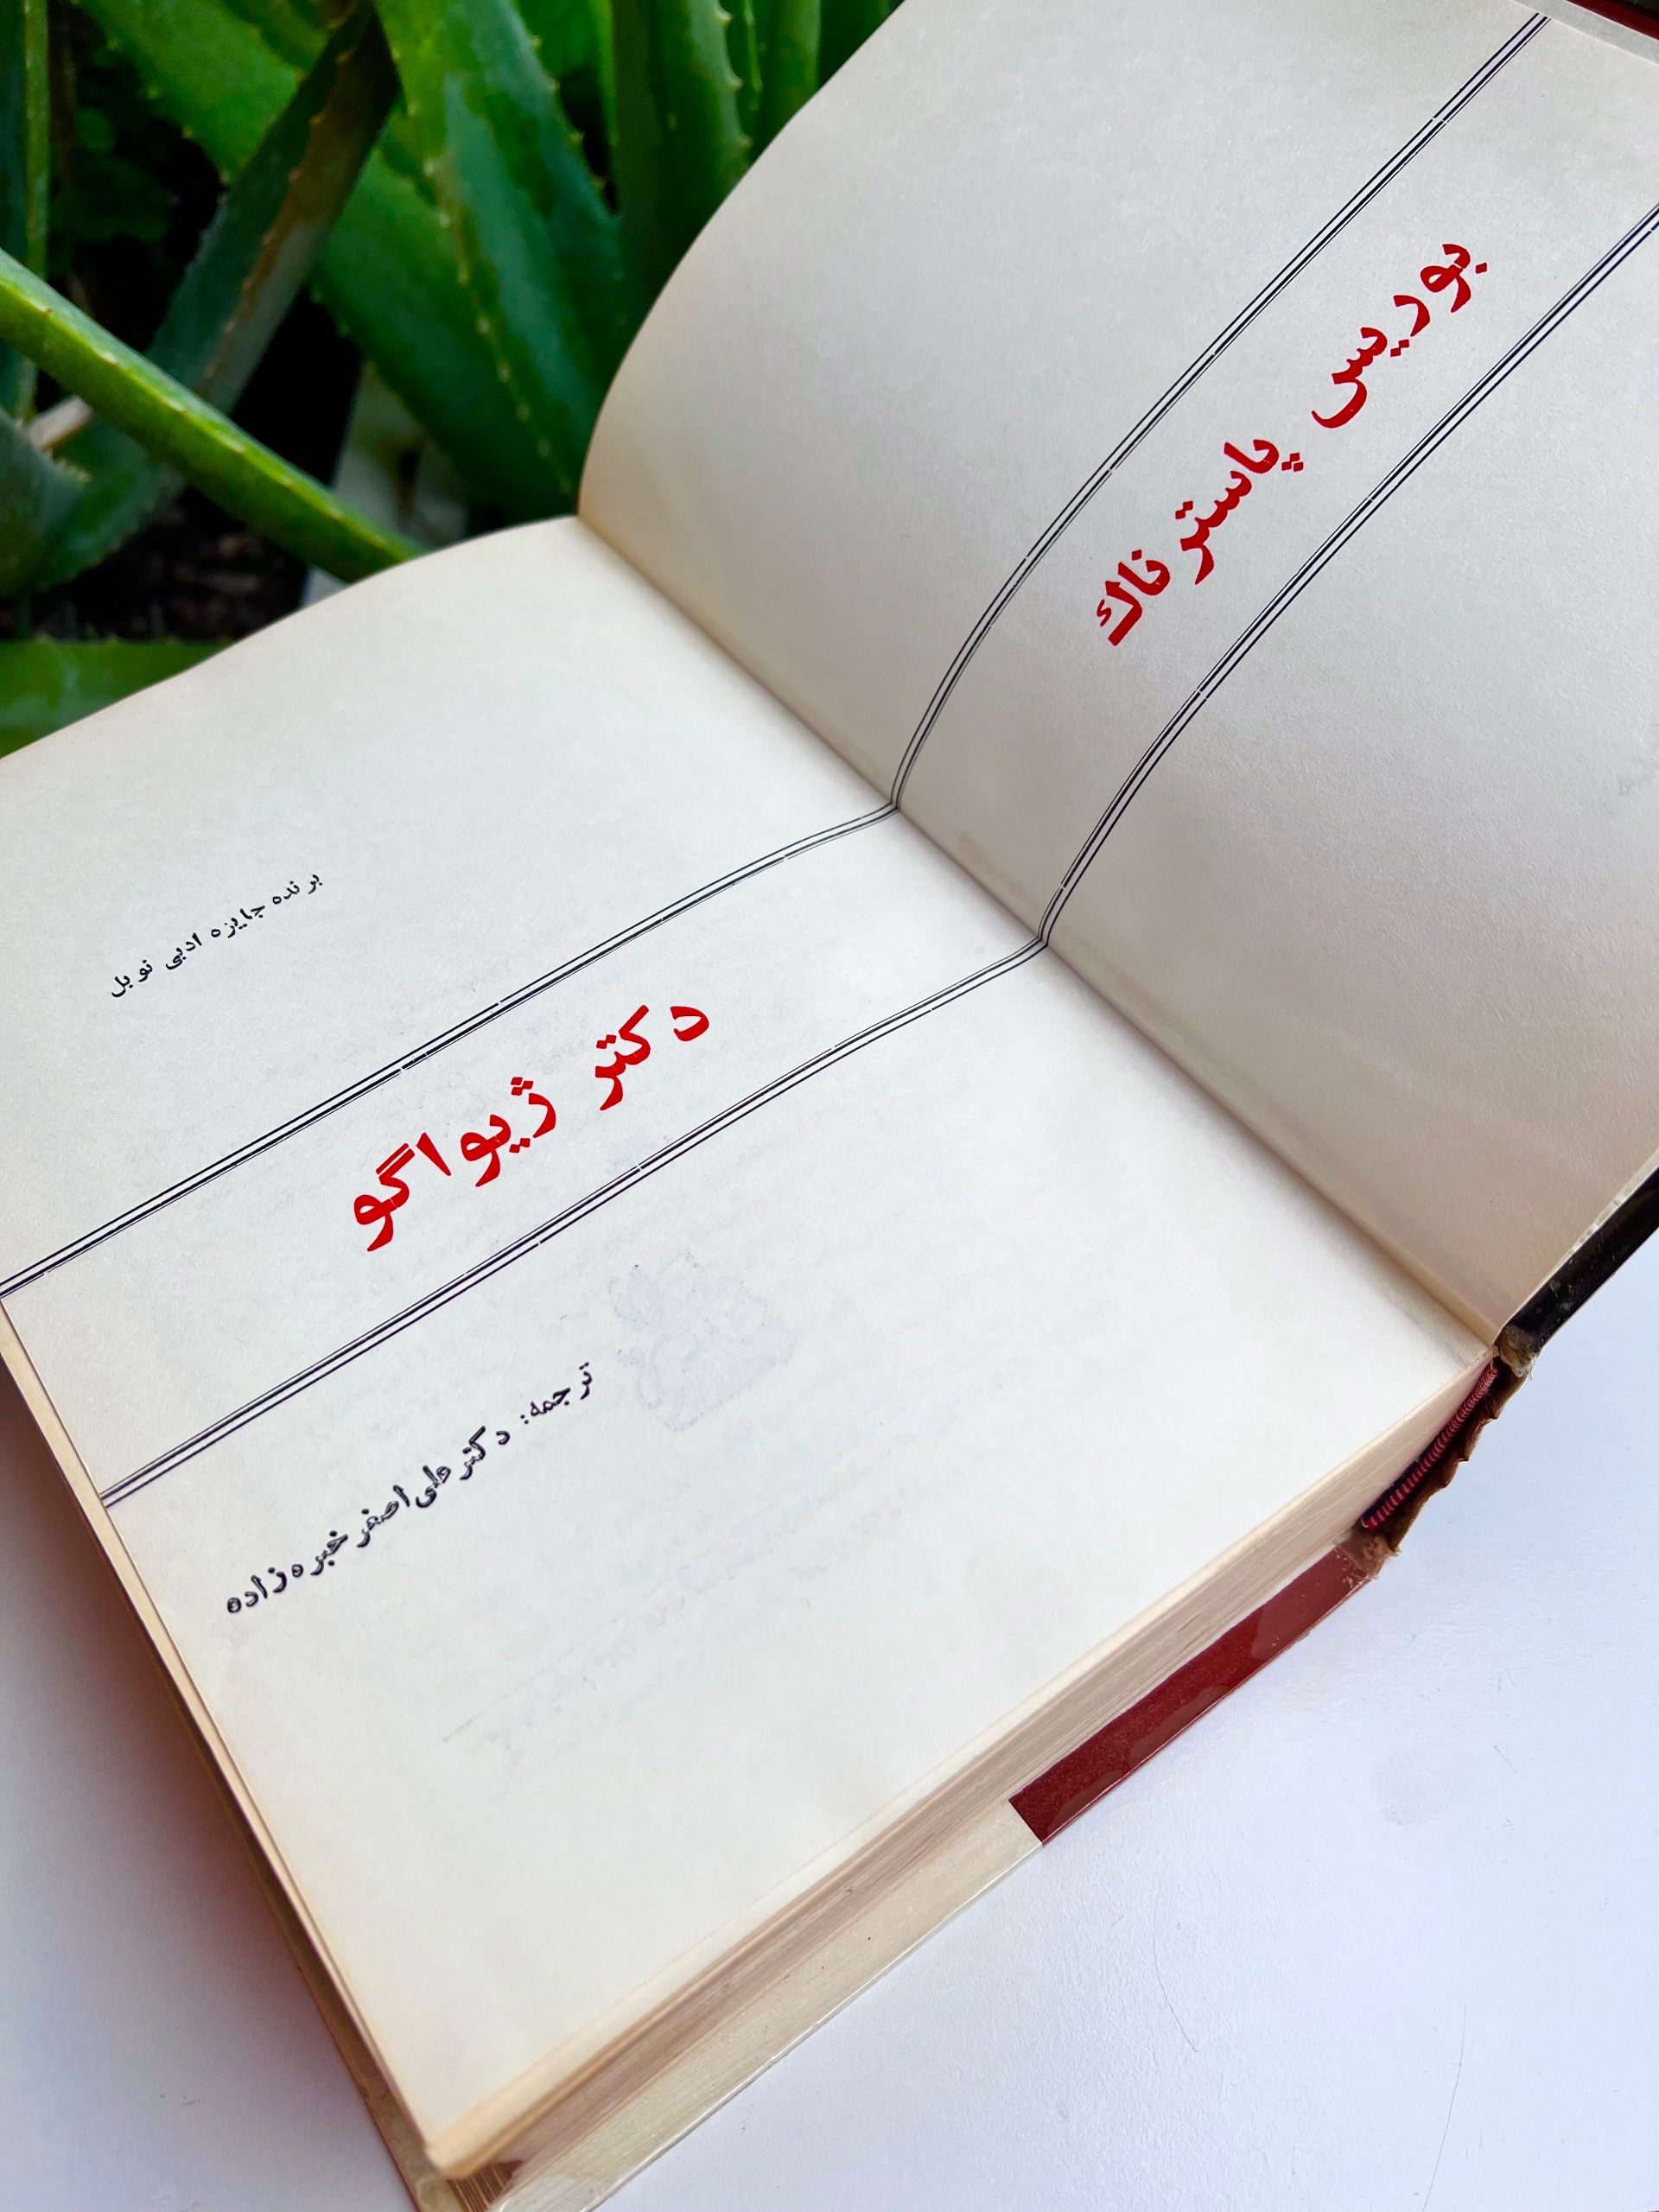 بوریس پاسترناك
برنده جایزه ادبی نوبل
دکتر ژیواگو
ترجمه: دکتر علی‌اصغر خبره‌زاده